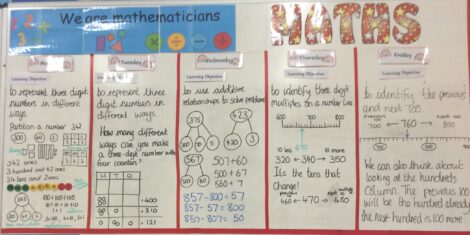 We are mathematicians
MATHS
Tuesday
Wednesday
Thursday
Friday
Learning Objective
Learning Objective
Learning Objective
Learning Objective
to represent three digit
numbers in different
ways.
Partition a number 342
342 ones
3 hundred and 42 ones
34 tens and 2 ones
100+100+100
to represent three
digit numbers in
different ways.
How many different
ways can you make
a three digit number with
four counters?
H T O
=400
=310
0 0 =121
to use additive
relationships to solve problems
375
300 70 5
423
400 20 3
567
507+60
500+67
560+7
857-800=57
857-57=800
857-807=50
to identify three digit
multiples on a number line
600 670 700
10 less 670 10 more
320 ← 340 → 350
It's the tens that
change!
previous next
460 ← 470 → 480
to identify the previous
and next 100
Previous next
700 ← 760 → 800
700 800
We can also think about
looking at the hundreds
column. The previous 100
will be the hundred already
the next hundred is 100 more